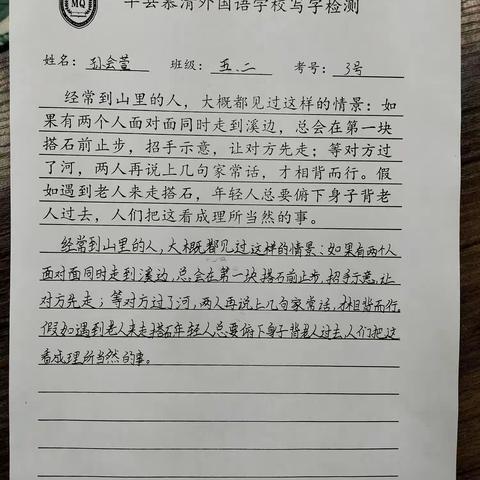 MQ
莘县慕清外国语学校写字检测
姓名：孙会萱 班级：五.二 考号：3号
经常到山里的人，大概都见过这样的情景：如
果有两个人面对面同时走到溪边，总会在第一块
搭石前止步，招手示意，让对方先走；等对方过
了河，两人再说上几句家常话，才相背而行。假
如遇到老人来走搭石，年轻人总要俯下身子背老
人过去，人们把这看成理所当然的事。
经常到山里的人，大概都见过这样的情景：如果有两个人
面对面同时走到溪边，总会在第一块搭石前止步，招手示意，让
对方先走；等对方过了河，两人再说上几句家常话，才相背而行。
假如遇到老人来走搭石，年轻人总要俯下身子背老人过去，人们把这
看成理所当然的事。